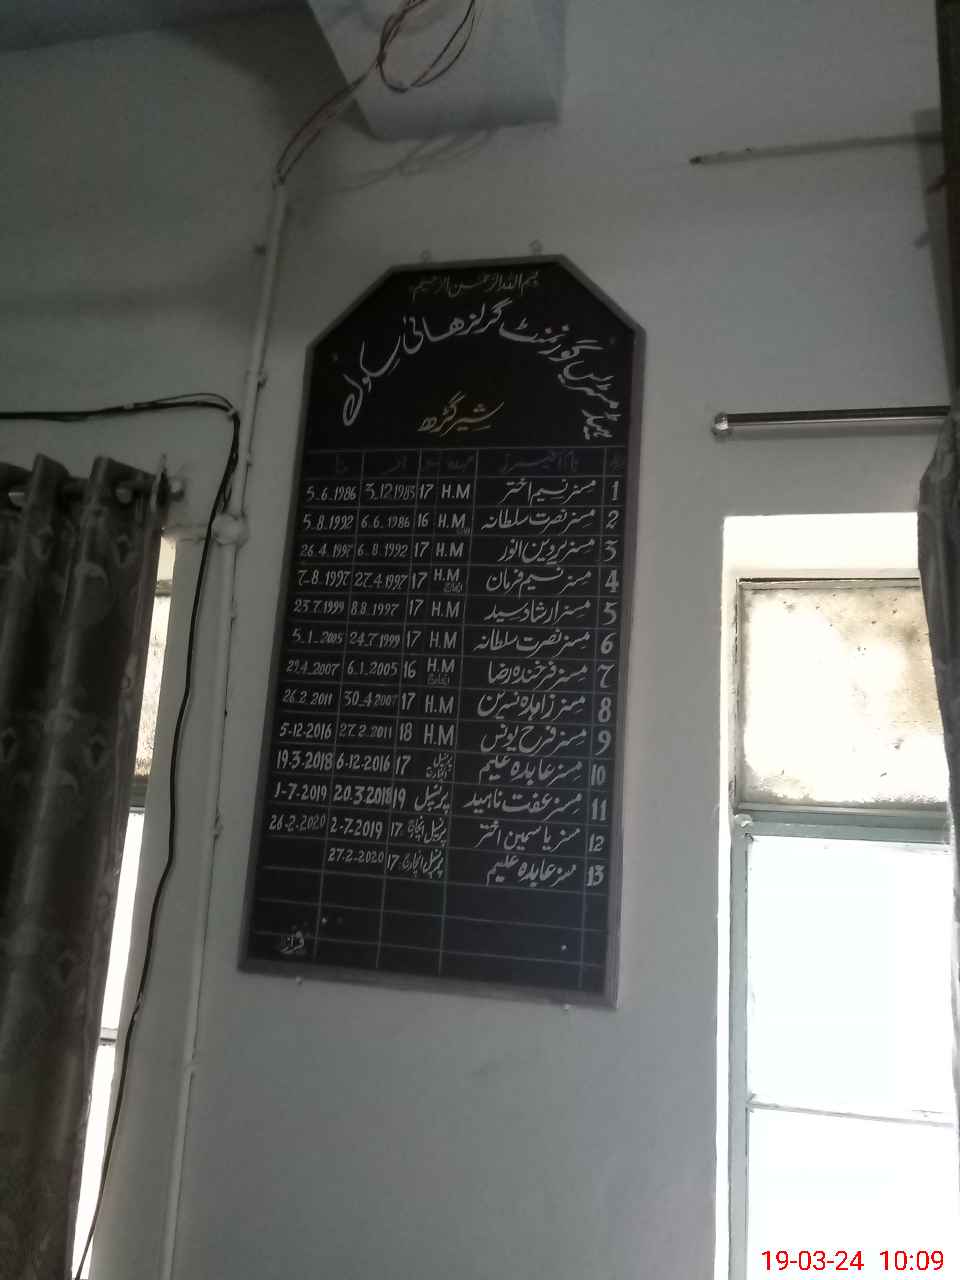 بسم اللہ الرحمن الرحیم
ہیڈ مسٹریس گورنمنٹ گرلز ھائی سکول
شیر گڑھ
1 مسز نسیم اختر H.M 17 3.12.1983 5.6.1986
2 مسز نصرت سلطانہ H.M 16 6.6.1986 5.8.1992
3 مسز پروین انور H.M 17 6.8.1992 26.4.1997
4 مسز نسیم فرمان H.M انچارج 17 27.4.1997 7-8.1997
5 مسز ارشاد سید H.M 17 8.8.1997 23.7.1999
6 مسز نصرت سلطانہ H.M 17 24.7.1999 5.1.2005
7 مسز فرخندہ رضا H.M انچارج 16 6.1.2005 29.4.2007
8 مسز زاہدہ نسرین H.M 17 30.4.2007 26.2.2011
9 مسز فرح یونس H.M 18 27.2.2011 5-12-2016
10 مسز عابدہ علیم پرنسپل انچارج 17 6-12-2016 19-3-2018
11 مسز عفت ناہید پرنسپل 19 20.3.2018 1-7-2019
12 مسز یاسمین اختر پرنسپل انچارج 17 2-7-2019 26-2-2020
13 مسز عابدہ علیم پرنسپل انچارج 17 27-2-2020
19-03-24 10:09